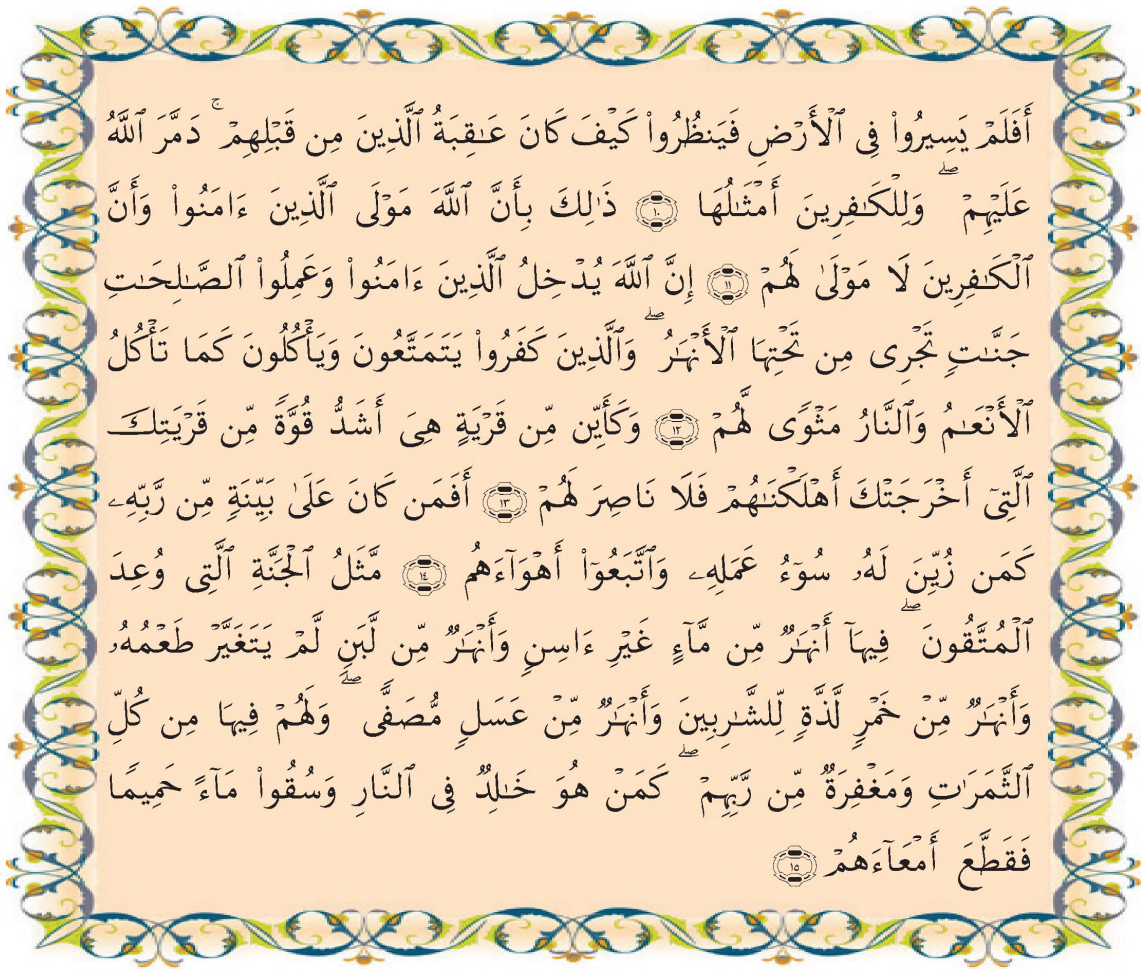 أَفَلَمۡ يَسِيرُواْ فِي ٱلۡأَرۡضِ فَيَنظُرُواْ كَيۡفَ كَانَ عَٰقِبَةُ ٱلَّذِينَ مِن قَبۡلِهِمۡۚ دَمَّرَ ٱللَّهُ
عَلَيۡهِمۡۖ وَلِلۡكَٰفِرِينَ أَمۡثَٰلُهَا ١٠ ذَٰلِكَ بِأَنَّ ٱللَّهَ مَوۡلَى ٱلَّذِينَ ءَامَنُواْ وَأَنَّ
ٱلۡكَٰفِرِينَ لَا مَوۡلَىٰ لَهُمۡ ١١ إِنَّ ٱللَّهَ يُدۡخِلُ ٱلَّذِينَ ءَامَنُواْ وَعَمِلُواْ ٱلصَّٰلِحَٰتِ
جَنَّٰتٖ تَجۡرِي مِن تَحۡتِهَا ٱلۡأَنۡهَٰرُۖ وَٱلَّذِينَ كَفَرُواْ يَتَمَتَّعُونَ وَيَأۡكُلُونَ كَمَا تَأۡكُلُ
ٱلۡأَنۡعَٰمُ وَٱلنَّارُ مَثۡوٗى لَّهُمۡ ١٢ وَكَأَيِّن مِّن قَرۡيَةٍ هِيَ أَشَدُّ قُوَّةٗ مِّن قَرۡيَتِكَ
ٱلَّتِيٓ أَخۡرَجَتۡكَ أَهۡلَكۡنَٰهُمۡ فَلَا نَاصِرَ لَهُمۡ ١٣ أَفَمَن كَانَ عَلَىٰ بَيِّنَةٖ مِّن رَّبِّهِۦ
كَمَن زُيِّنَ لَهُۥ سُوٓءُ عَمَلِهِۦ وَٱتَّبَعُوٓاْ أَهۡوَآءَهُم ١٤ مَّثَلُ ٱلۡجَنَّةِ ٱلَّتِي وُعِدَ
ٱلۡمُتَّقُونَۖ فِيهَآ أَنۡهَٰرٞ مِّن مَّآءٍ غَيۡرِ ءَاسِنٖ وَأَنۡهَٰرٞ مِّن لَّبَنٖ لَّمۡ يَتَغَيَّرۡ طَعۡمُهُۥ
وَأَنۡهَٰرٞ مِّنۡ خَمۡرٖ لَّذَّةٖ لِّلشَّٰرِبِينَ وَأَنۡهَٰرٞ مِّنۡ عَسَلٖ مُّصَفّٗىۖ وَلَهُمۡ فِيهَا مِن كُلِّ
ٱلثَّمَرَٰتِ وَمَغۡفِرَةٞ مِّن رَّبِّهِمۡۖ كَمَنۡ هُوَ خَٰلِدٞ فِي ٱلنَّارِ وَسُقُواْ مَآءً حَمِيمٗا
فَقَطَّعَ أَمۡعَآءَهُمۡ ١٥